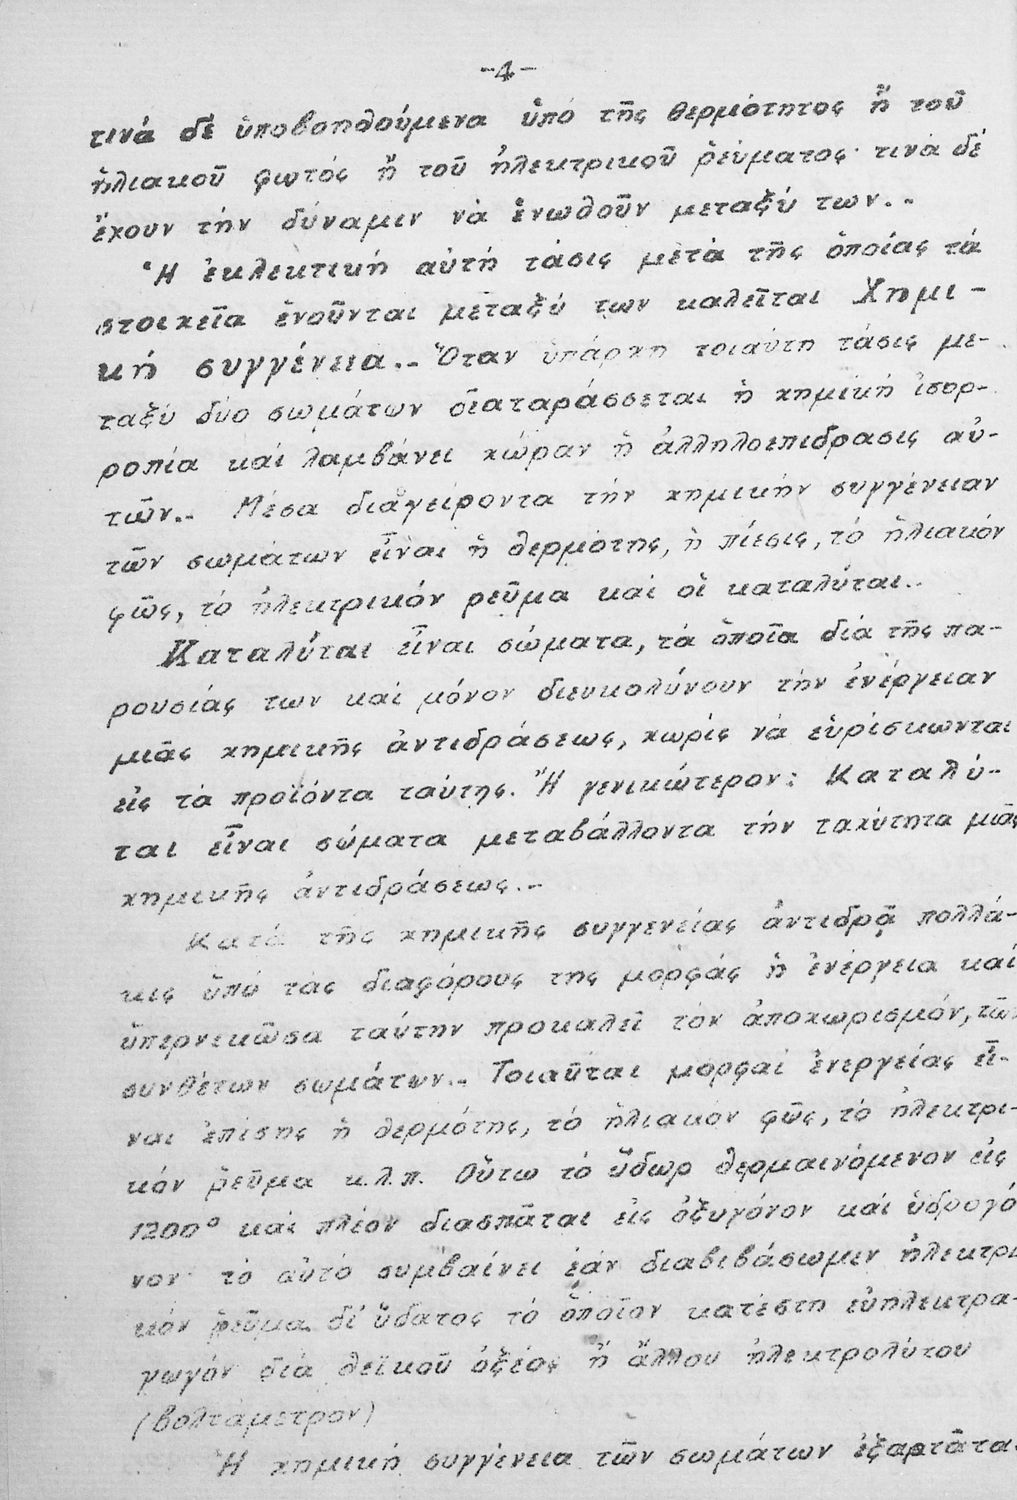 -4-
τινά δέ ὑποβοηθούμενα ὑπό τῆς θερμότητος ἤ τοῦ
ἡλιακοῦ φωτός ἤ τοῦ ἠλεκτρικοῦ ρεύματος· τινά δέ
ἔχουν τήν δύναμιν νά ἑνωθοῦν μεταξύ των.-
Ἡ ἐκλεκτική αὐτή τάσις μετά τῆς ὁποίας τά
στοιχεῖα ἑνοῦνται μεταξύ των καλεῖται Χημι-
κή συγγένεια.- Ὅταν ὑπάρχη τοιαύτη τάσις με-
ταξύ δύο σωμάτων διαταράσσεται ἡ χημική ἰσορ-
ροπία καί λαμβάνει χώραν ἡ ἀλληλοεπίδρασις αὐ-
τῶν.- Μέσα διαγείροντα τήν χημικήν συγγένειαν
τῶν σωμάτων εἶναι ἡ θερμότης, ἡ πίεσις, τό ἡλιακόν
φῶς, τό ἠλεκτρικόν ρεῦμα καί οἱ καταλύται.-
Καταλύται εἶναι σώματα, τά ὁποῖα διά τῆς πα-
ρουσίας των καί μόνον διευκολύνουν τήν ἐνέργειαν
μιᾶς χημικῆς ἀντιδράσεως, χωρίς νά εὑρίσκωνται
εἰς τά προϊόντα ταύτης. Ἤ γενικώτερον: Καταλύ-
ται εἶναι σώματα μεταβάλλοντα τήν ταχύτητα μιᾶς
χημικῆς ἀντιδράσεως.-
Κατά τῆς χημικῆς συγγενείας ἀντιδρᾷ πολλά-
κις ὑπό τάς διαφόρους της μορφάς ἡ ἐνέργεια καί
ὑπερνικῶσα ταύτην προκαλεῖ τόν ἀποχωρισμόν, τῶν
συνθέτων σωμάτων.- Τοιαῦται μορφαί ἐνεργείας εἶ-
ναι ἐπίσης ἡ θερμότης, τό ἡλιακόν φῶς, τό ἠλεκτρι-
κόν ρεῦμα κ.λ.π. Οὕτω τό ὕδωρ θερμαινόμενον εἰς
1200° καί πλέον διασπᾶται εἰς ὀξυγόνον καί ὑδρογό
νον· τό αὐτό συμβαίνει ἐάν διαβιβάσωμιν ἠλεκτρι
κόν ρεῦμα δι' ὕδατος τό ὁποῖον κατέστη εὐηλεκτρα-
γωγόν διά θεϊκοῦ ὀξέος ἤ ἄλλου ἠλεκτρολύτου
(βολτάμετρον)
Ἡ χημική συγγένεια τῶν σωμάτων ἐξαρτᾶται